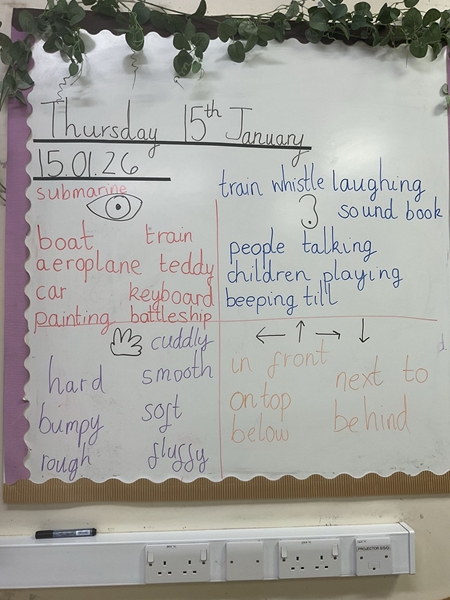 Thursday 15th January
15.01.26
submarine
boat train
aeroplane teddy
car keyboard
painting battleship
train whistle laughing
sound book
people talking
children playing
beeping till
cuddly
hard smooth
bumpy soft
rough fluffy
in front
next to
on top
behind
below
PROJECTOR